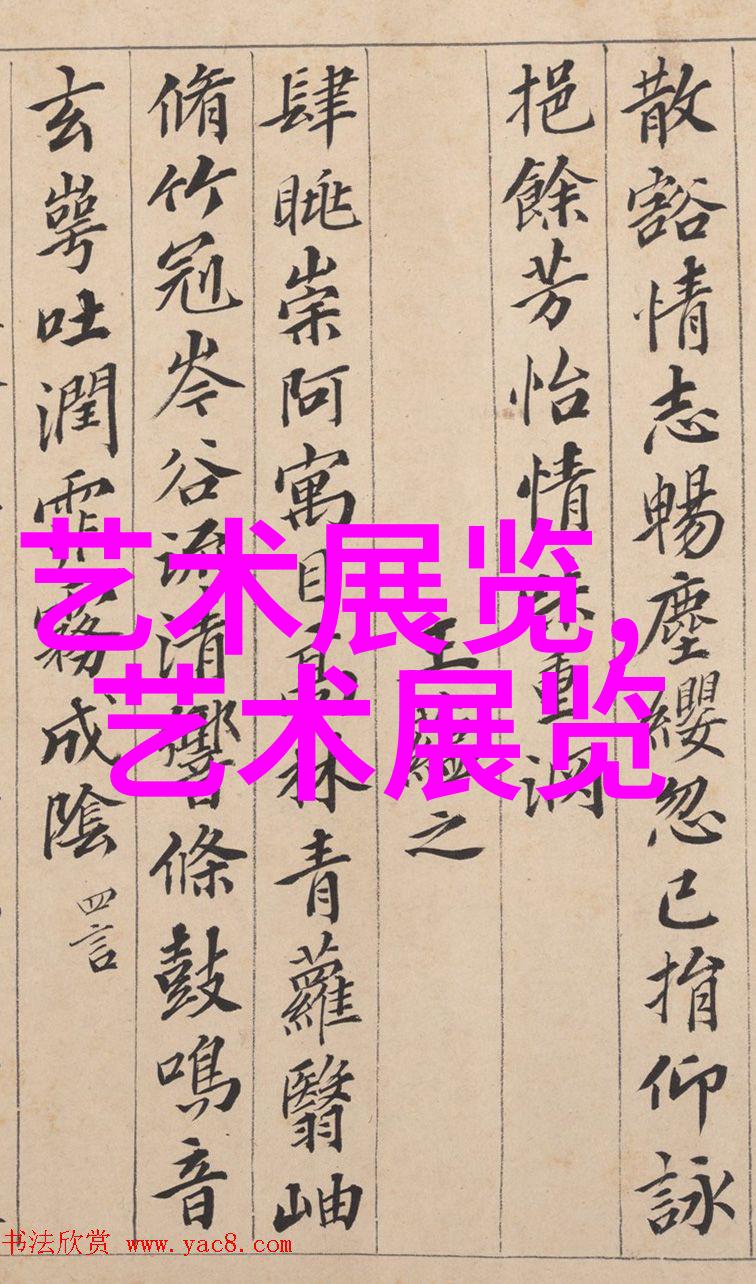 散豁情志暢塵纓忽已捐仰詠
挹餘芳怡情味重淵
王蘊之
肆眺崇阿寓目高林青蘿翳岫
脩竹冠岑谷流清響條鼓鳴音
玄崿吐潤霏霧成陰 四言
艺术展览,
艺术展览
书法欣赏 www.yac8.com